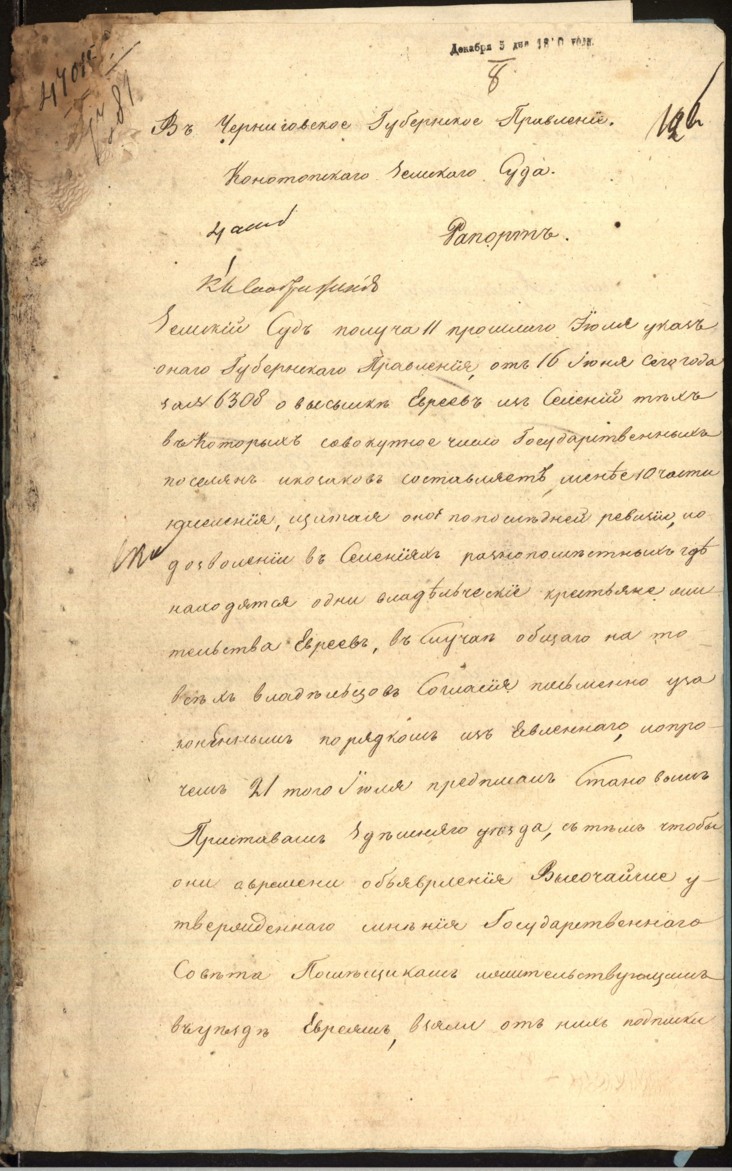 Декабря 3 дня 18 0 года.
8
47015
81
Въ Черниговское Губернское Правленіе.
126
Конотопскаго Земскаго Суда.
Рапортъ.
Земскій Судъ получа 11 прошлаго Іюля указъ
онаго Губернскаго Правленія, отъ 16 Іюня сего года
за № 6308 о высылкѣ Евреевъ изъ Селеній тѣхъ
въ Которыхъ совокупное число Государственныхъ
поселянъ и козаковъ составляетъ, менѣе 10 части
населенія, щитая оное по послѣдней ревизіи, и о
дозволеніи въ Селеніяхъ разнопомѣстныхъ гдѣ
находятся одни владѣльческіе крестьяне жи-
тельства Евреевъ, въ Случаѣ общаго на то
всѣхъ владѣльцовъ Согласія письменно уза
коненнымъ порядкомъ изъ Евленнаго, и о про-
чемъ 21 того Іюля предписалъ Становымъ
Приставамъ Здѣшняго уѣзда, съ тѣмъ чтобы
они о времени объявленія Высочайше у-
твержденнаго мнѣнія Государственнаго
Совѣта Помѣщикамъ и жительствующимъ
въ уѣздѣ Евреямъ, взяли отъ нихъ подписки